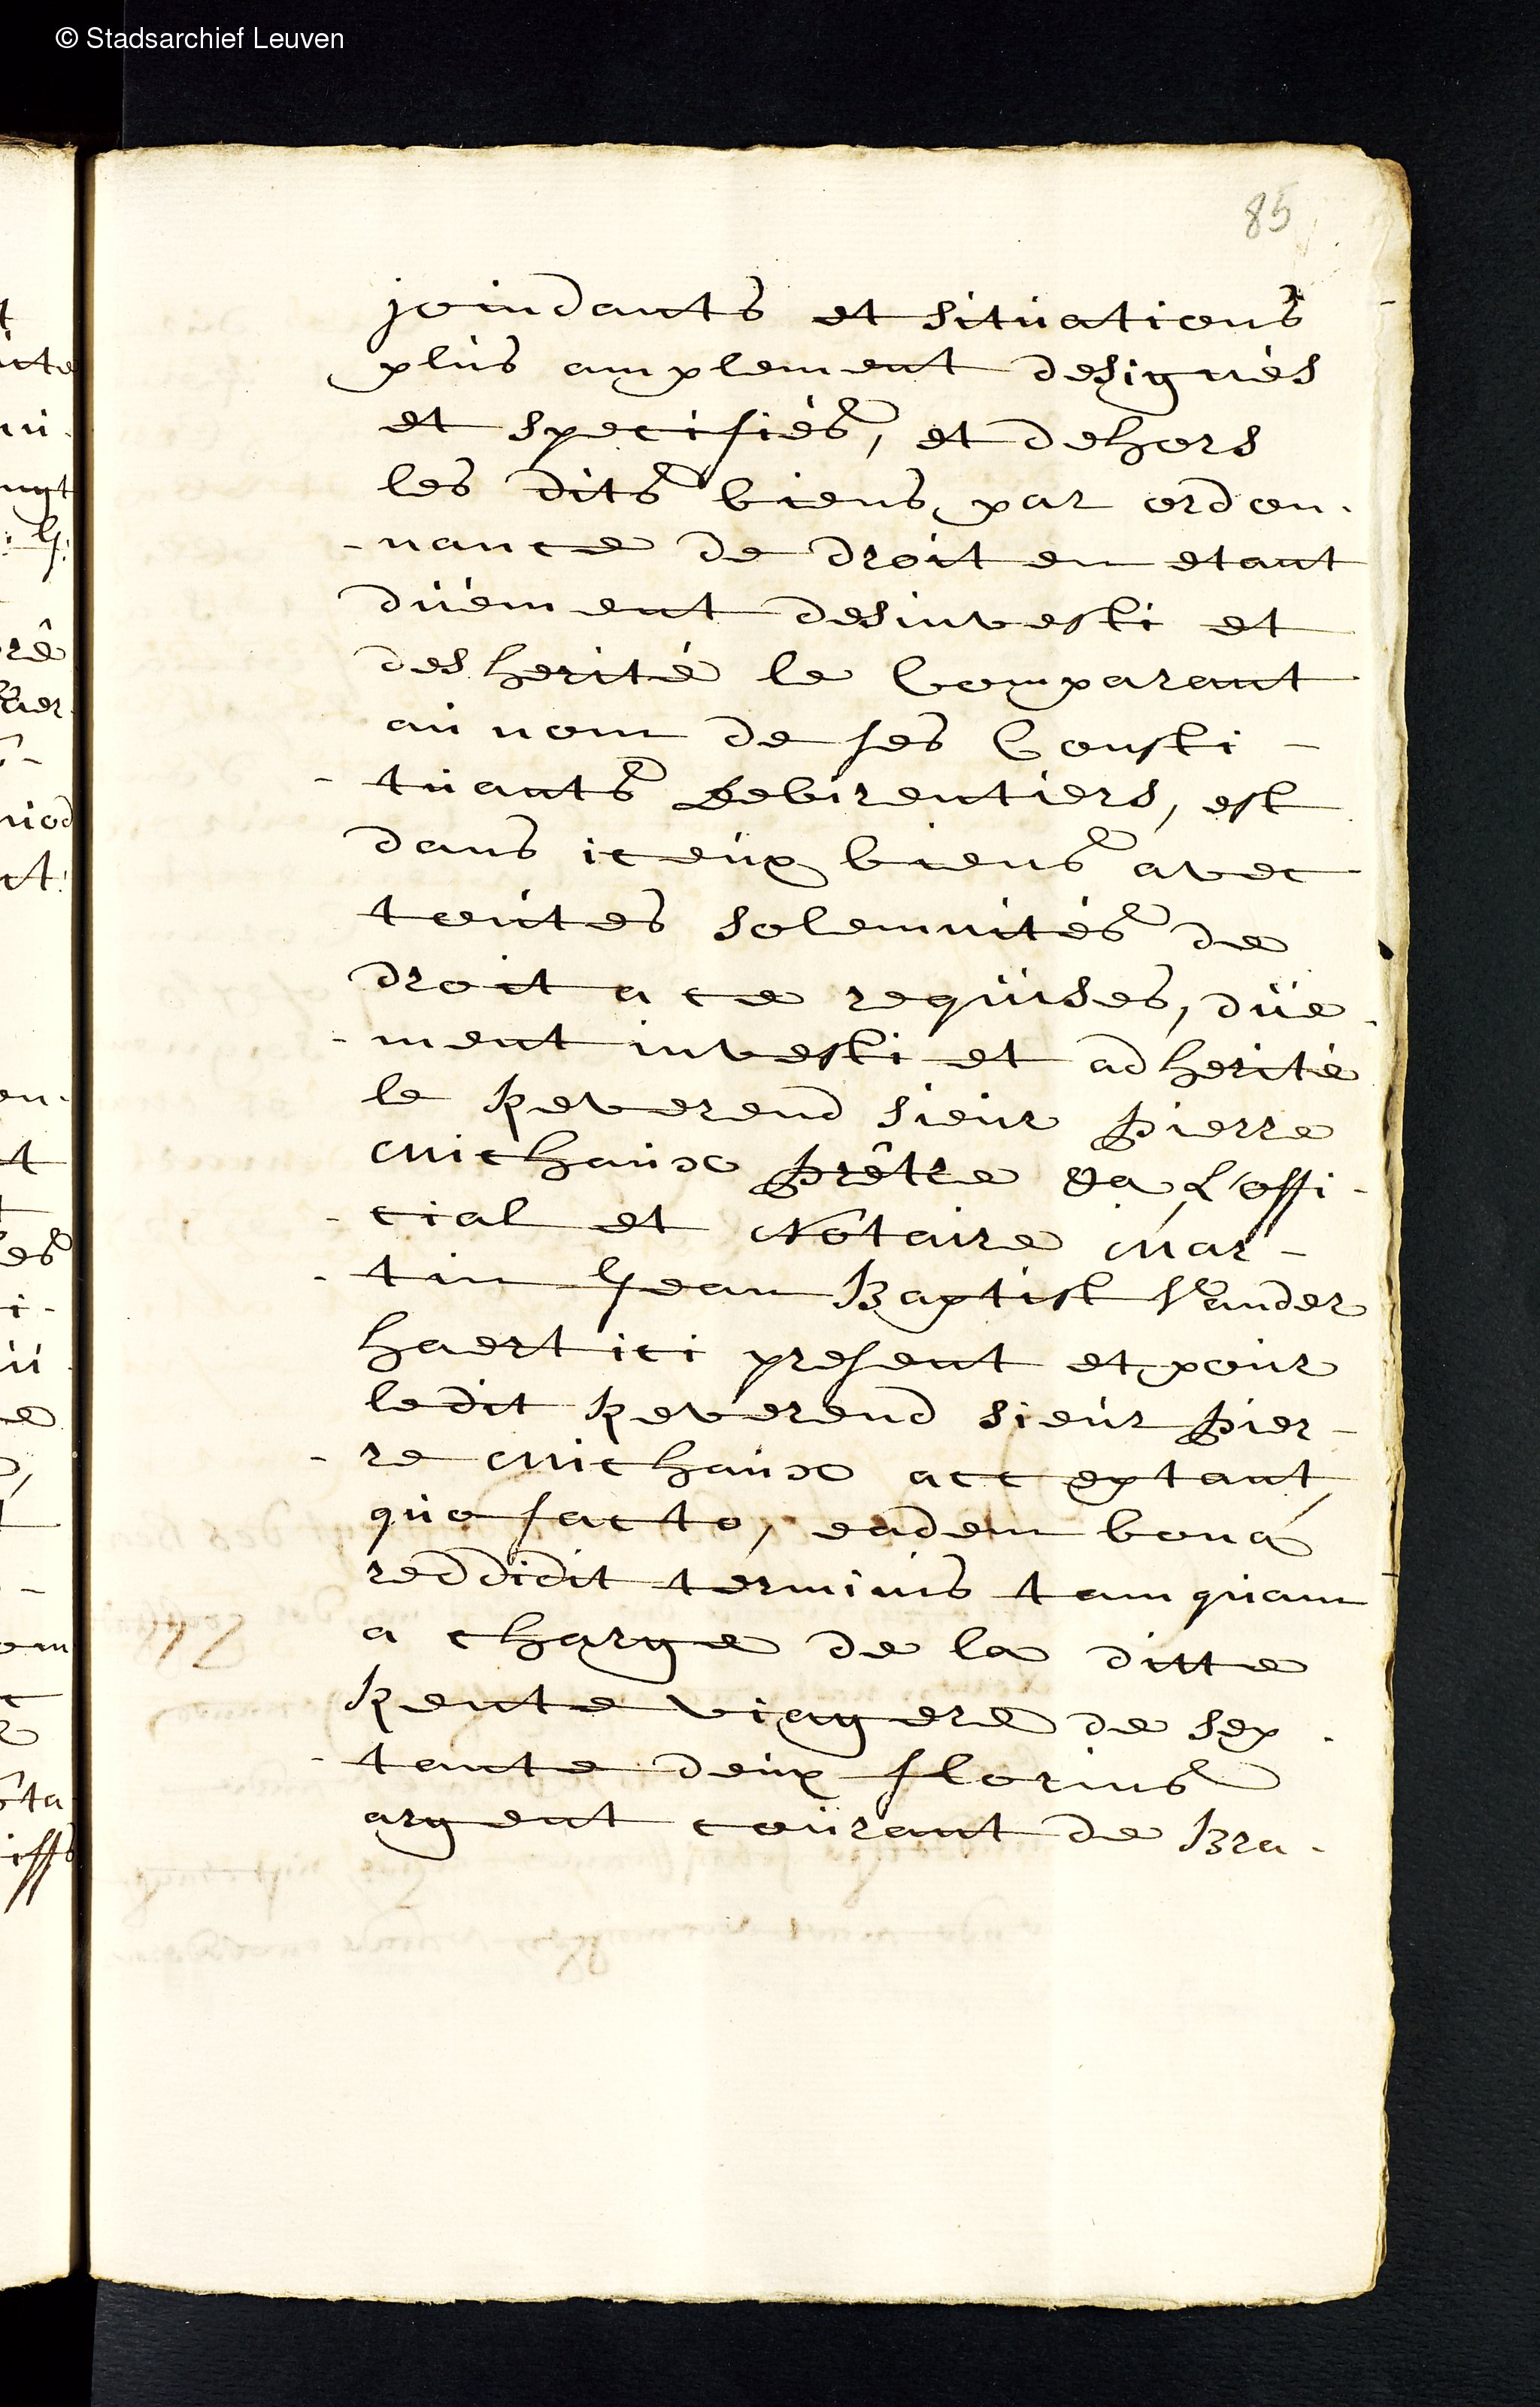 © Stadsarchief Leuven
85
joindants et situations
plus amplement designés
et specifiés, et dehors
les dits biens par ordon-
-nance de droit en etant
düement desinvesti et
desherité le Comparant
au nom de ses Consti-
-tuants Debirentiers, est
dans iceux biens avec
toutes solemnités de
droit a ce requises, düe-
-ment investi et adherité
le Reverend Sieur Pierre
Michaux Prêtre Ja L'offi-
-cial et Nótaire Mar-
-tin Jean Baptist Vander
haert ici present et pour
ledit Reverend Sieur Pier-
-re Michaux acceptant,
quo facto, eadem bona
reddidit terminis tamquam
a charge de la ditte
Rente viagere de sep-
-tante deux florins
argent courant de Bra-